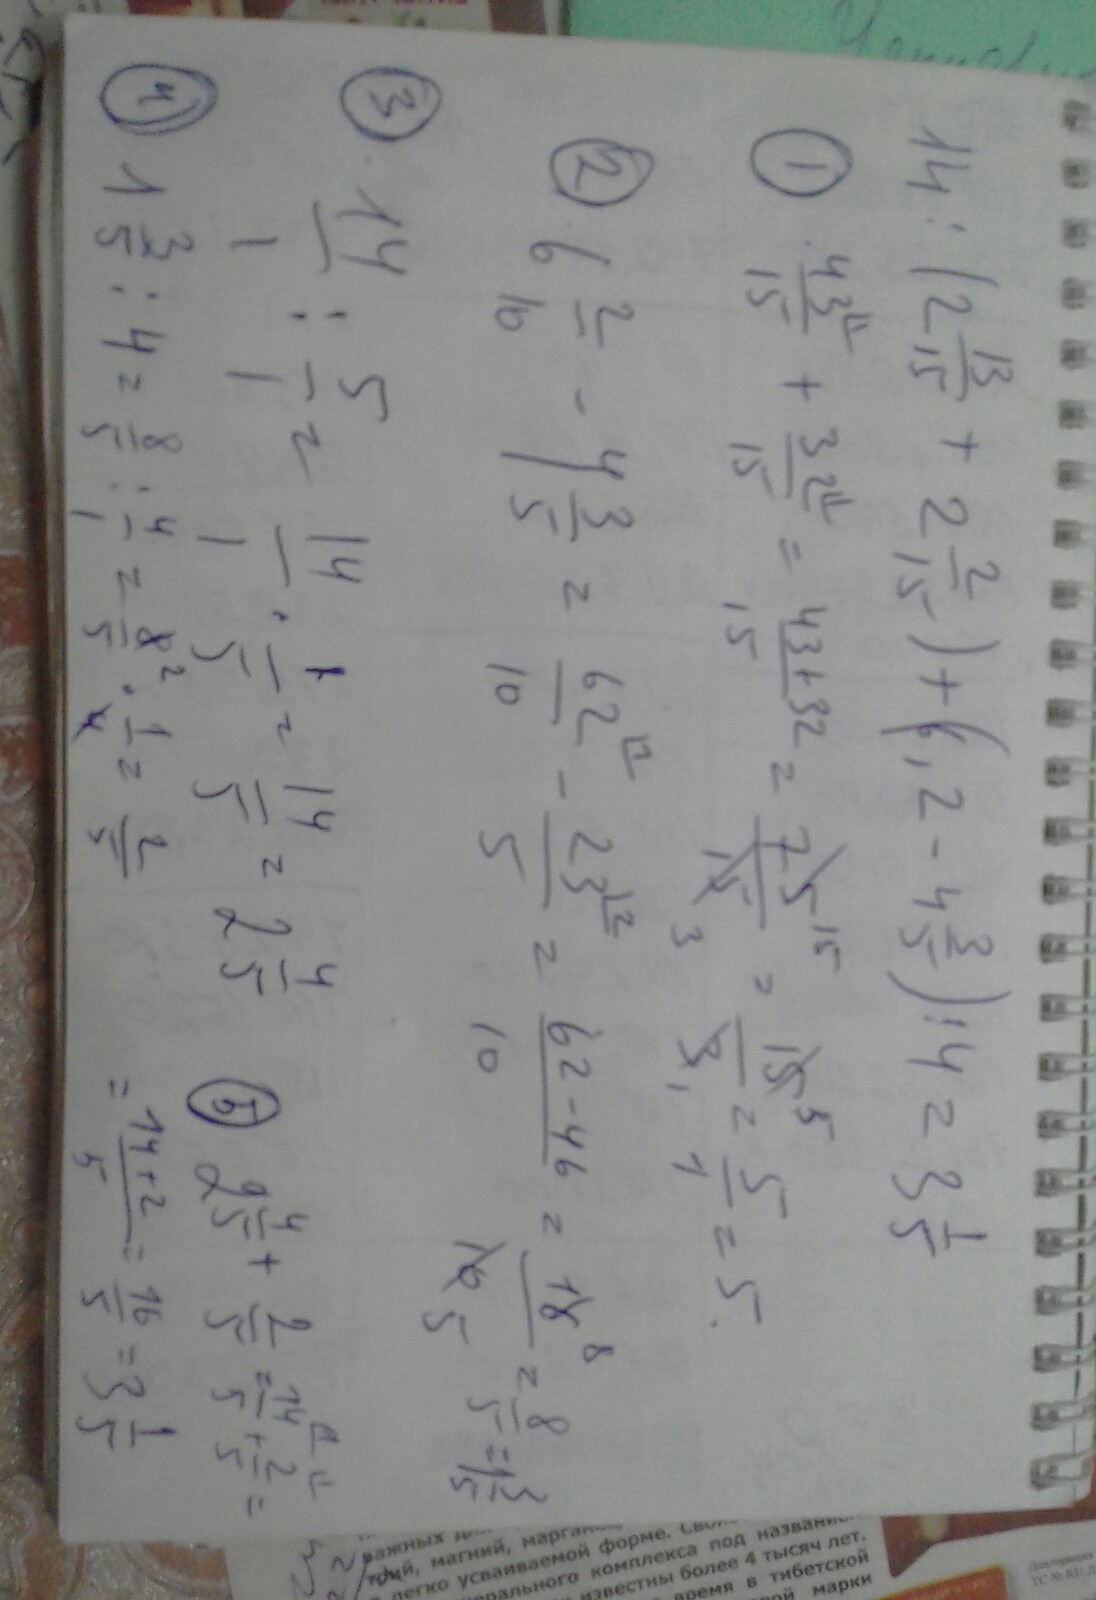 14 : (2 13/15 + 2 2/15) + (6,2 - 4 3/5) : 4 = 3 1/5
① 43/15 + 32/15 = 43+32/15 = 75/15 = 15/3 = 5/1 = 5.
② 6 2/10 - 4 3/5 = 62/10 - 23/5 = 62-46/10 = 16/10 = 8/5 = 1 3/5
③ 14/1 : 5/1 = 14/1 · 1/5 = 14/5 = 2 4/5
④ 1 3/5 : 4 = 8/5 : 4/1 = 8/5 · 1/4 = 2/5
⑤ 2 4/5 + 2/5 = 14/5 + 2/5 =
= 14+2/5 = 16/5 = 3 1/5
магний,
легко усваиваемой форме.
комплекса под названи
известны более 4 тысяч лет.
время в тибетской
марки